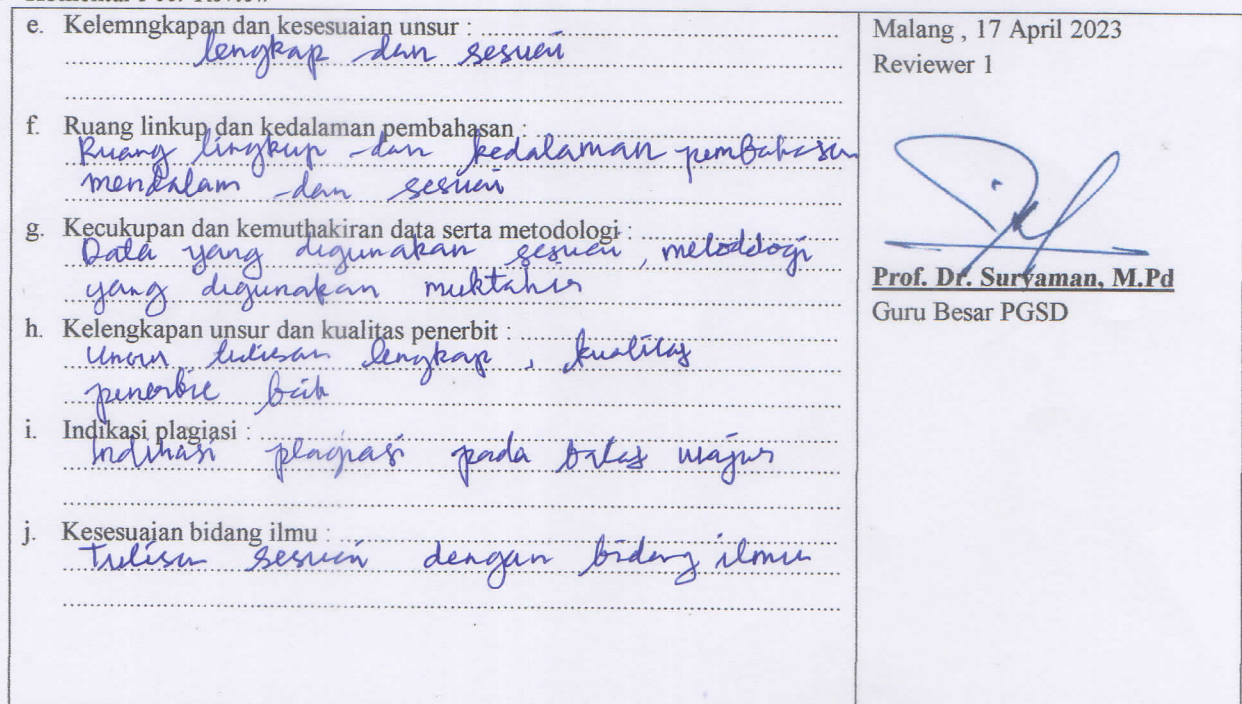 e. Kelemngkapan dan kesesuaian unsur :
lengkap dan sesuai
f. Ruang linkup dan kedalaman pembahasan :
Ruang lingkup dan kedalaman pembahasan
mendalam dan sesuai
g. Kecukupan dan kemuthakiran data serta metodologi :
Data yang digunakan sesuai, metodologi
yang digunakan muktahir
h. Kelengkapan unsur dan kualitas penerbit :
Unsur tulisan lengkap, kualitas
penerbit baik
i. Indikasi plagiasi :
Indikasi plagiasi pada batas wajar
j. Kesesuaian bidang ilmu :
Tulisan sesuai dengan bidang ilmu
Malang , 17 April 2023
Reviewer 1
Prof. Dr. Suryaman, M.Pd
Guru Besar PGSD